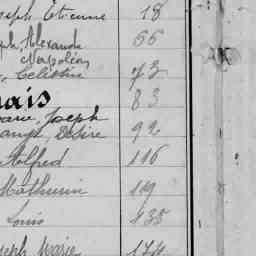 seph Etienne 18
ph, Alexandre 66
Napoléon
, Célestin 73
nais 83
Marie, Joseph
Désiré 92
Alfred 116
Mathurin 119
Louis 135
seph Marie 174